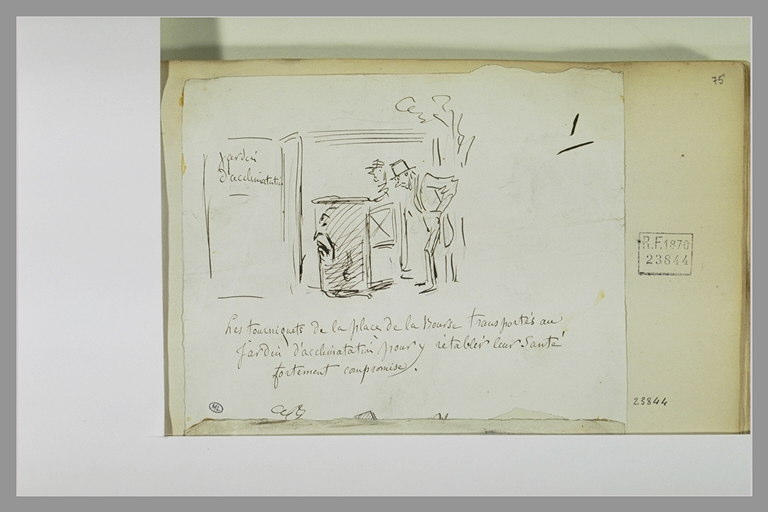 75
Jardin
d'acclimatation
R.F. 1870
23844
Les tourniquets de la place de la Bourse transportés au
Jardin d'acclimatation pour y rétablir leur Santé
fortement compromise.
23844